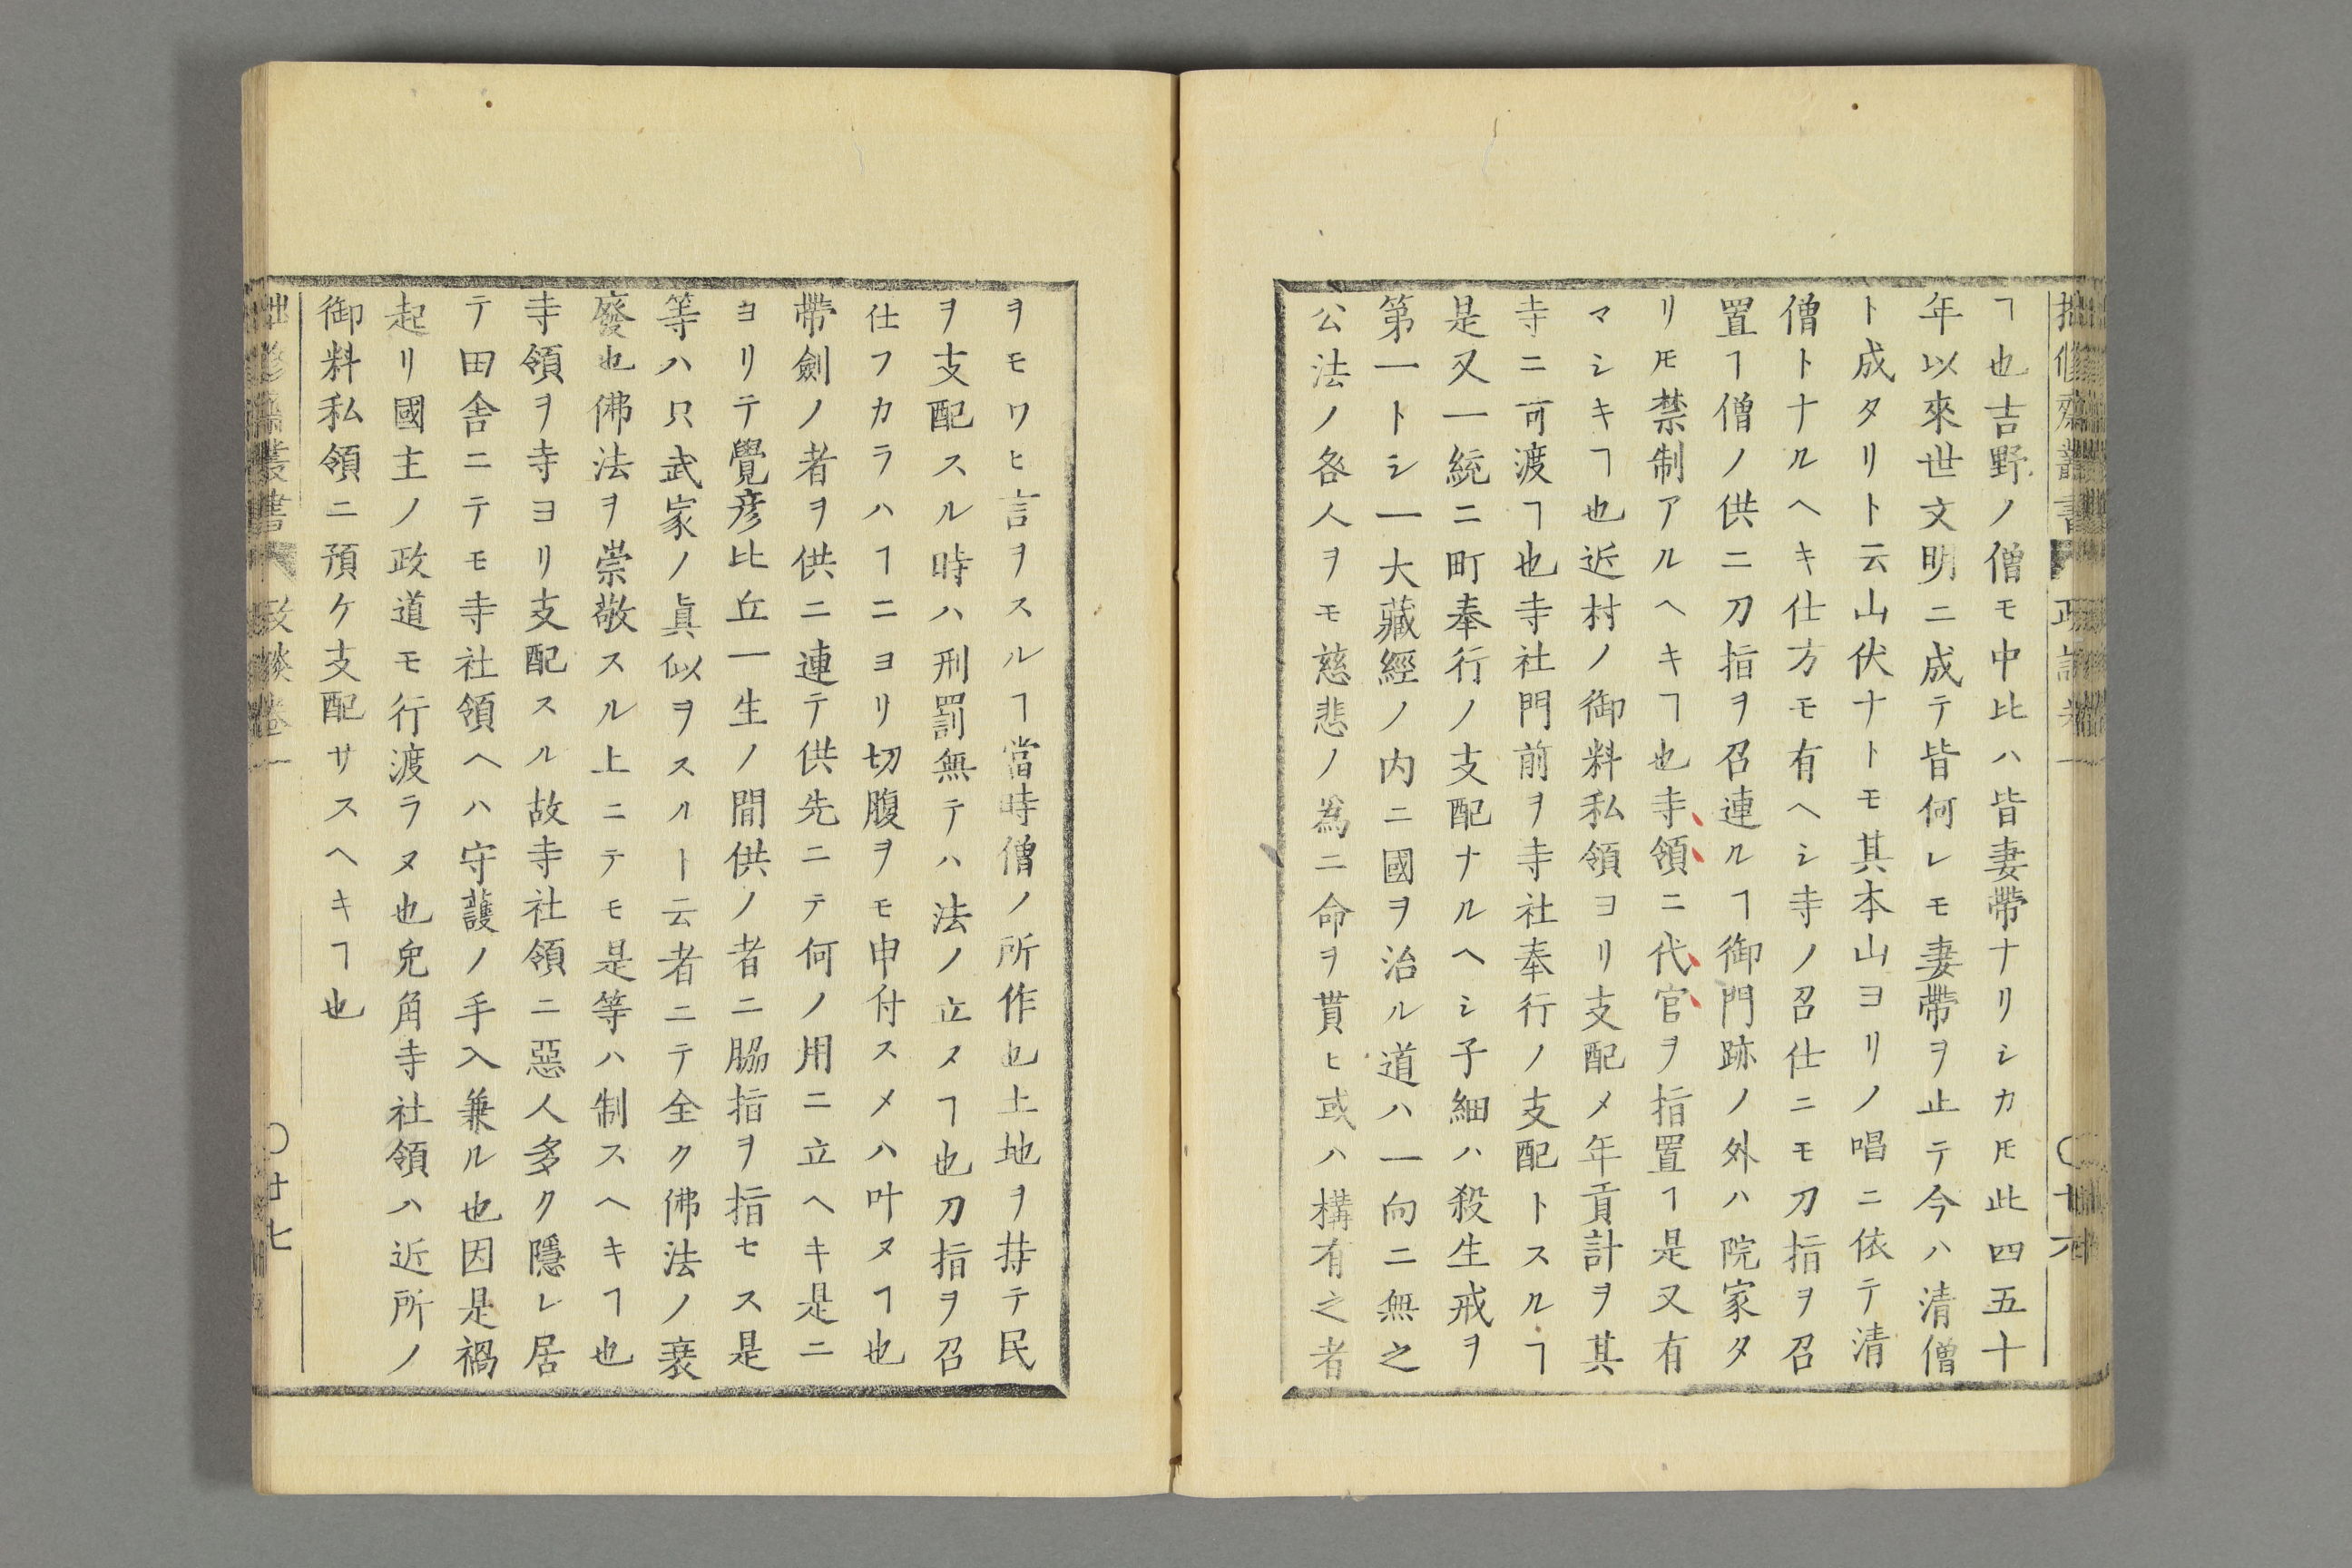 拙修齋叢書 政談卷一 〇廿六
ヿ也吉野ノ僧モ中比ハ皆妻帶ナリシカ𪜈此四五十
年以來世文明ニ成テ皆何レモ妻帶ヲ止テ今ハ清僧
ト成タリト云山伏ナトモ其本山ヨリノ唱ニ依テ清
僧トナルヘキ仕方モ有ヘシ寺ノ召仕ニモ刀指ヲ召
置ヿ僧ノ供ニ刀指ヲ召連ルヿ御門跡ノ外ハ院家タ
リ𪜈禁制アルヘキヿ也寺領ニ代官ヲ指置ヿ是又有
マシキヿ也近村ノ御料私領ヨリ支配メ年貢計ヲ其
寺ニ可渡ヿ也寺社門前ヲ寺社奉行ノ支配トスルヿ
是又一統ニ町奉行ノ支配ナルヘシ子細ハ殺生戒ヲ
第一トシ一大藏經ノ内ニ國ヲ治ル道ハ一向ニ無之
公法ノ各人ヲモ慈悲ノ爲ニ命ヲ貰ヒ或ハ構有之者
ヲモワヒ言ヲスルヿ當時僧ノ所作也土地ヲ持テ民
ヲ支配スル時ハ刑罰無テハ法ノ立ヌヿ也刀指ヲ召
仕フカラハヿニヨリ切腹ヲモ申付スメハ叶ヌヿ也
帶劍ノ者ヲ供ニ連テ供先ニテ何ノ用ニ立ヘキ是ニ
ヨリテ覺彦比丘一生ノ間供ノ者ニ脇指ヲ指セス是
等ハ只武家ノ眞似ヲスルト云者ニテ全ク佛法ノ衰
廢也佛法ヲ崇敬スル上ニテモ是等ハ制スヘキヿ也
寺領ヲ寺ヨリ支配スル故寺社領ニ惡人多ク隱レ居
テ田舍ニテモ寺社領ヘハ守護ノ手入兼ル也因是禍
起リ國主ノ政道モ行渡ラヌ也兔角寺社領ハ近所ノ
御料私領ニ預ケ支配サスヘキヿ也
拙修齋叢書 政談卷一 〇廿七